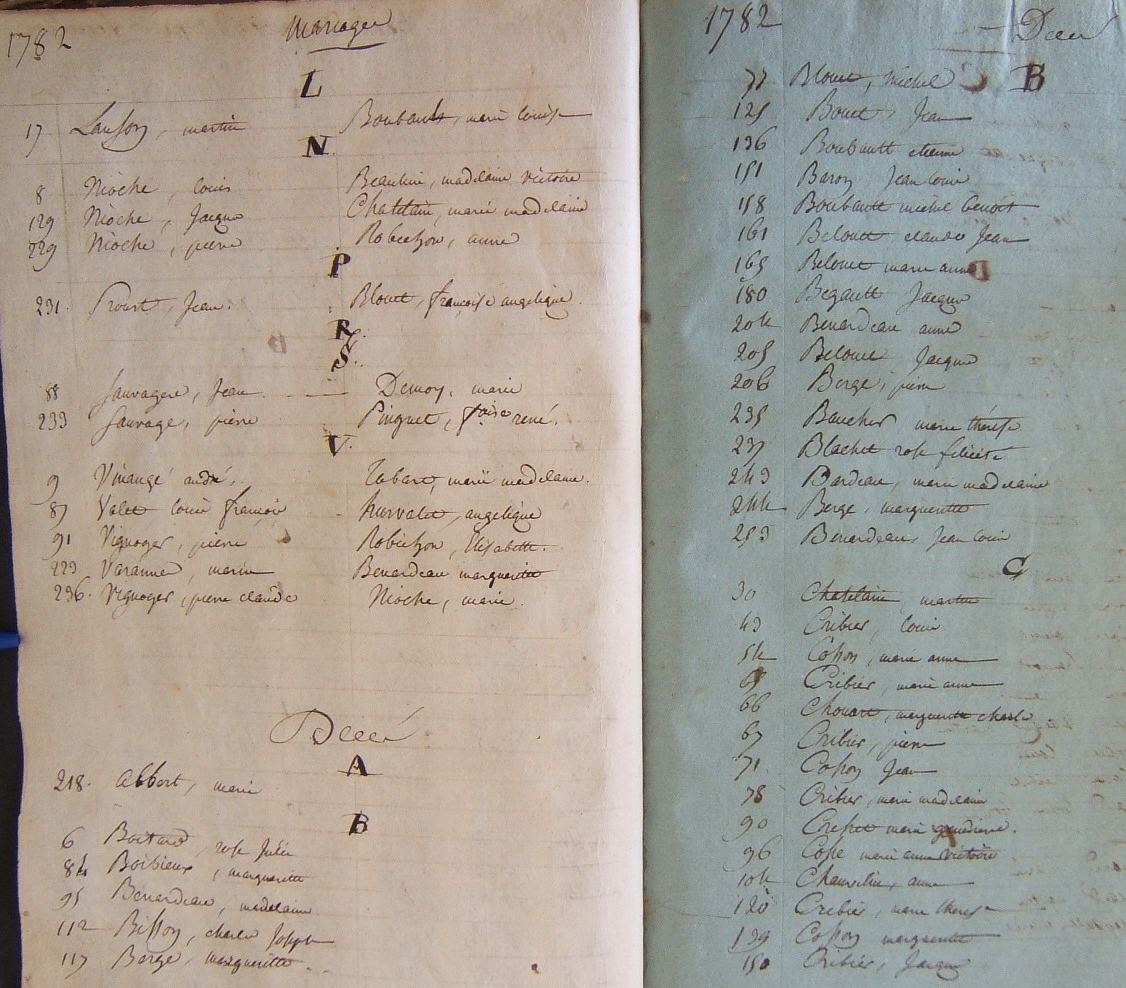 1782 Mariages
L
17 Lanson, martin Boubault, marie louise
N
8 Nioche, louis Beaulieu, madelaine victoire
129 Nioche, Jacque Chatelain, marie madelaine
229 Nioche, pierre Robichon, anne
P
231. Proust, Jean. Blouet, françoise angelique.
R
S.
88 Sauvagere, Jean Demoy, marie
233 Sauvage, pierre Pinguet, fçoise rené.
V
9 Vinangé andré. Tabart, marie madelaine.
87 Valet louis françois angelique
91 Vignoger, pierre Robichon, Elisabette.
223 Varanne, marin Benardeau marguerite
236. Vignoger, pierre claude Nioche, marie.
Décès
A
218. abbort, marie
B
6 Boitard, rose Julie
84 Boibieux, marguerite
95 Benardeau, madelaine
112 Bisson, charles Joseph
117 Berge, marguerite
1782 Décès
B
77 Blouet, michel
125 Bouet, Jean
136 Boubault etienne
151 Baron Jean louis
158 Boubault michel benoit
161 Belouet claude Jean
165 Belouet marie anne
180 Begault Jacque
204 Benardeau anne
205 Belouet Jacque
206 Berge, pierre
235 Baucher marie thérèse
237 Blachet rose félicité
243 Bardeau, marie madelaine
244 Berge, marguerite
253 Benardeau, Jean louis
C
30 Chatelain, martin
43 Cribier, louis
54 Cosson, marie anne
65 Cribier, marie anne
66 Chouart, marguerite charle
67 Cribier, pierre
71. Cosson Jean
78 Cribier, marie madelaine
90 Crespet marie geneviève.
96 Cosse marie anne victoire
104 Chauvelin, anne
120 Cribier, marie therese
139 Cosson marguerite
150 Cribier, Jacque